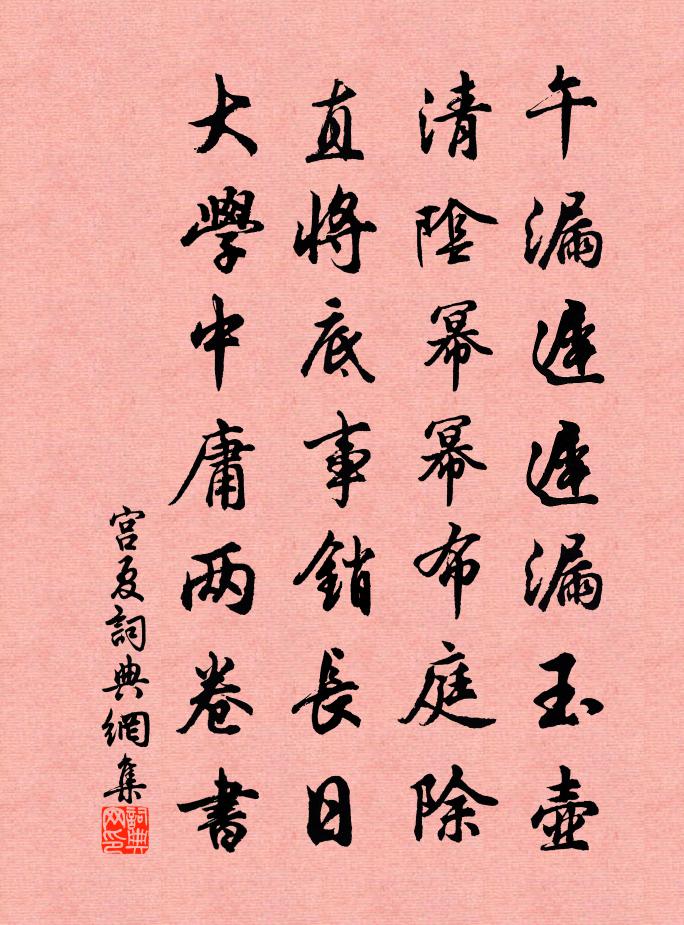 午漏遲遲漏玉壺
清陰冪冪布庭除
直將底事銷長日
大學中庸两卷書
宫夏詞典網集
詞典
网印